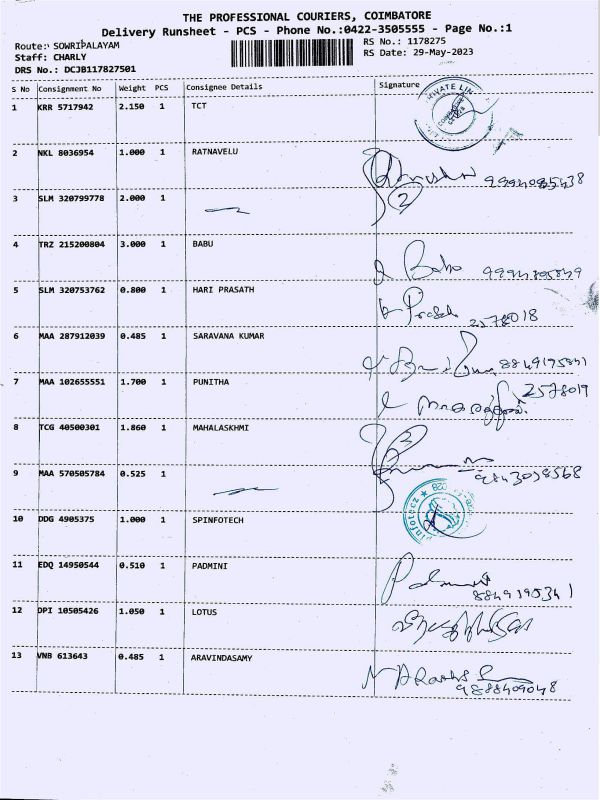 THE PROFESSIONAL COURIERS, COIMBATORE
Delivery Runsheet - PCS - Phone No.:0422-3505555 - Page No.:1
Route: SOWRIPALAYAM
RS No.: 1178275
Staff: CHARLY
RS Date: 29-May-2023
DRS No.: DCJB117827501
S No Consignment No Weight PCS Consignee Details Signature
1 KRR 5717942 2.150 1 TCT
2 NKL 8036954 1.000 1 RATNAVELU
3 SLM 320799778 2.000 1 2
4 TRZ 215200804 3.000 1 BABU Babu
5 SLM 320753762 0.800 1 HARI PRASATH 2578018
6 MAA 287912039 0.485 1 SARAVANA KUMAR
7 MAA 102655551 1.700 1 PUNITHA 2578019
8 TCG 40500301 1.860 1 MAHALASKHMI
9 MAA 570505784 0.525 1
10 DDG 4905375 1.000 1 SPINFOTECH
11 EDQ 14950544 0.510 1 PADMINI 8849195341
12 DPI 10505426 1.050 1 LOTUS
13 VNB 613643 0.485 1 ARAVINDASAMY
9888409048